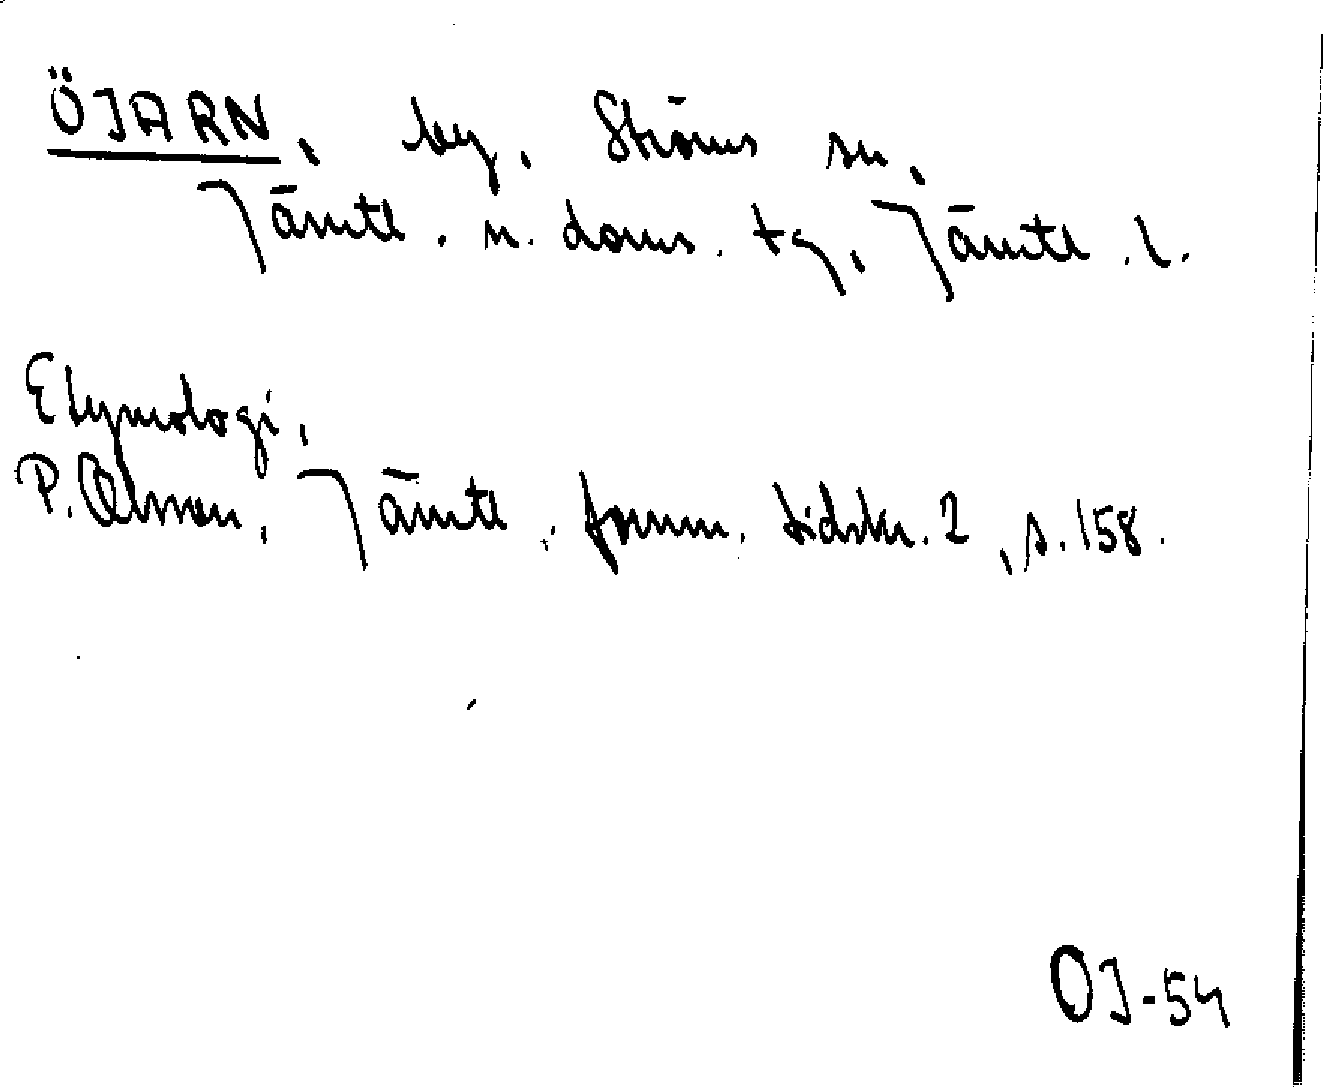 ÖJARN, by, Ströms sn,
Jämtl. n. doms. tg, Jämtl. l.
Etymologi,
P. Olsson, Jämtl. fornm. tidskr. 2, s. 158.
OJ-54